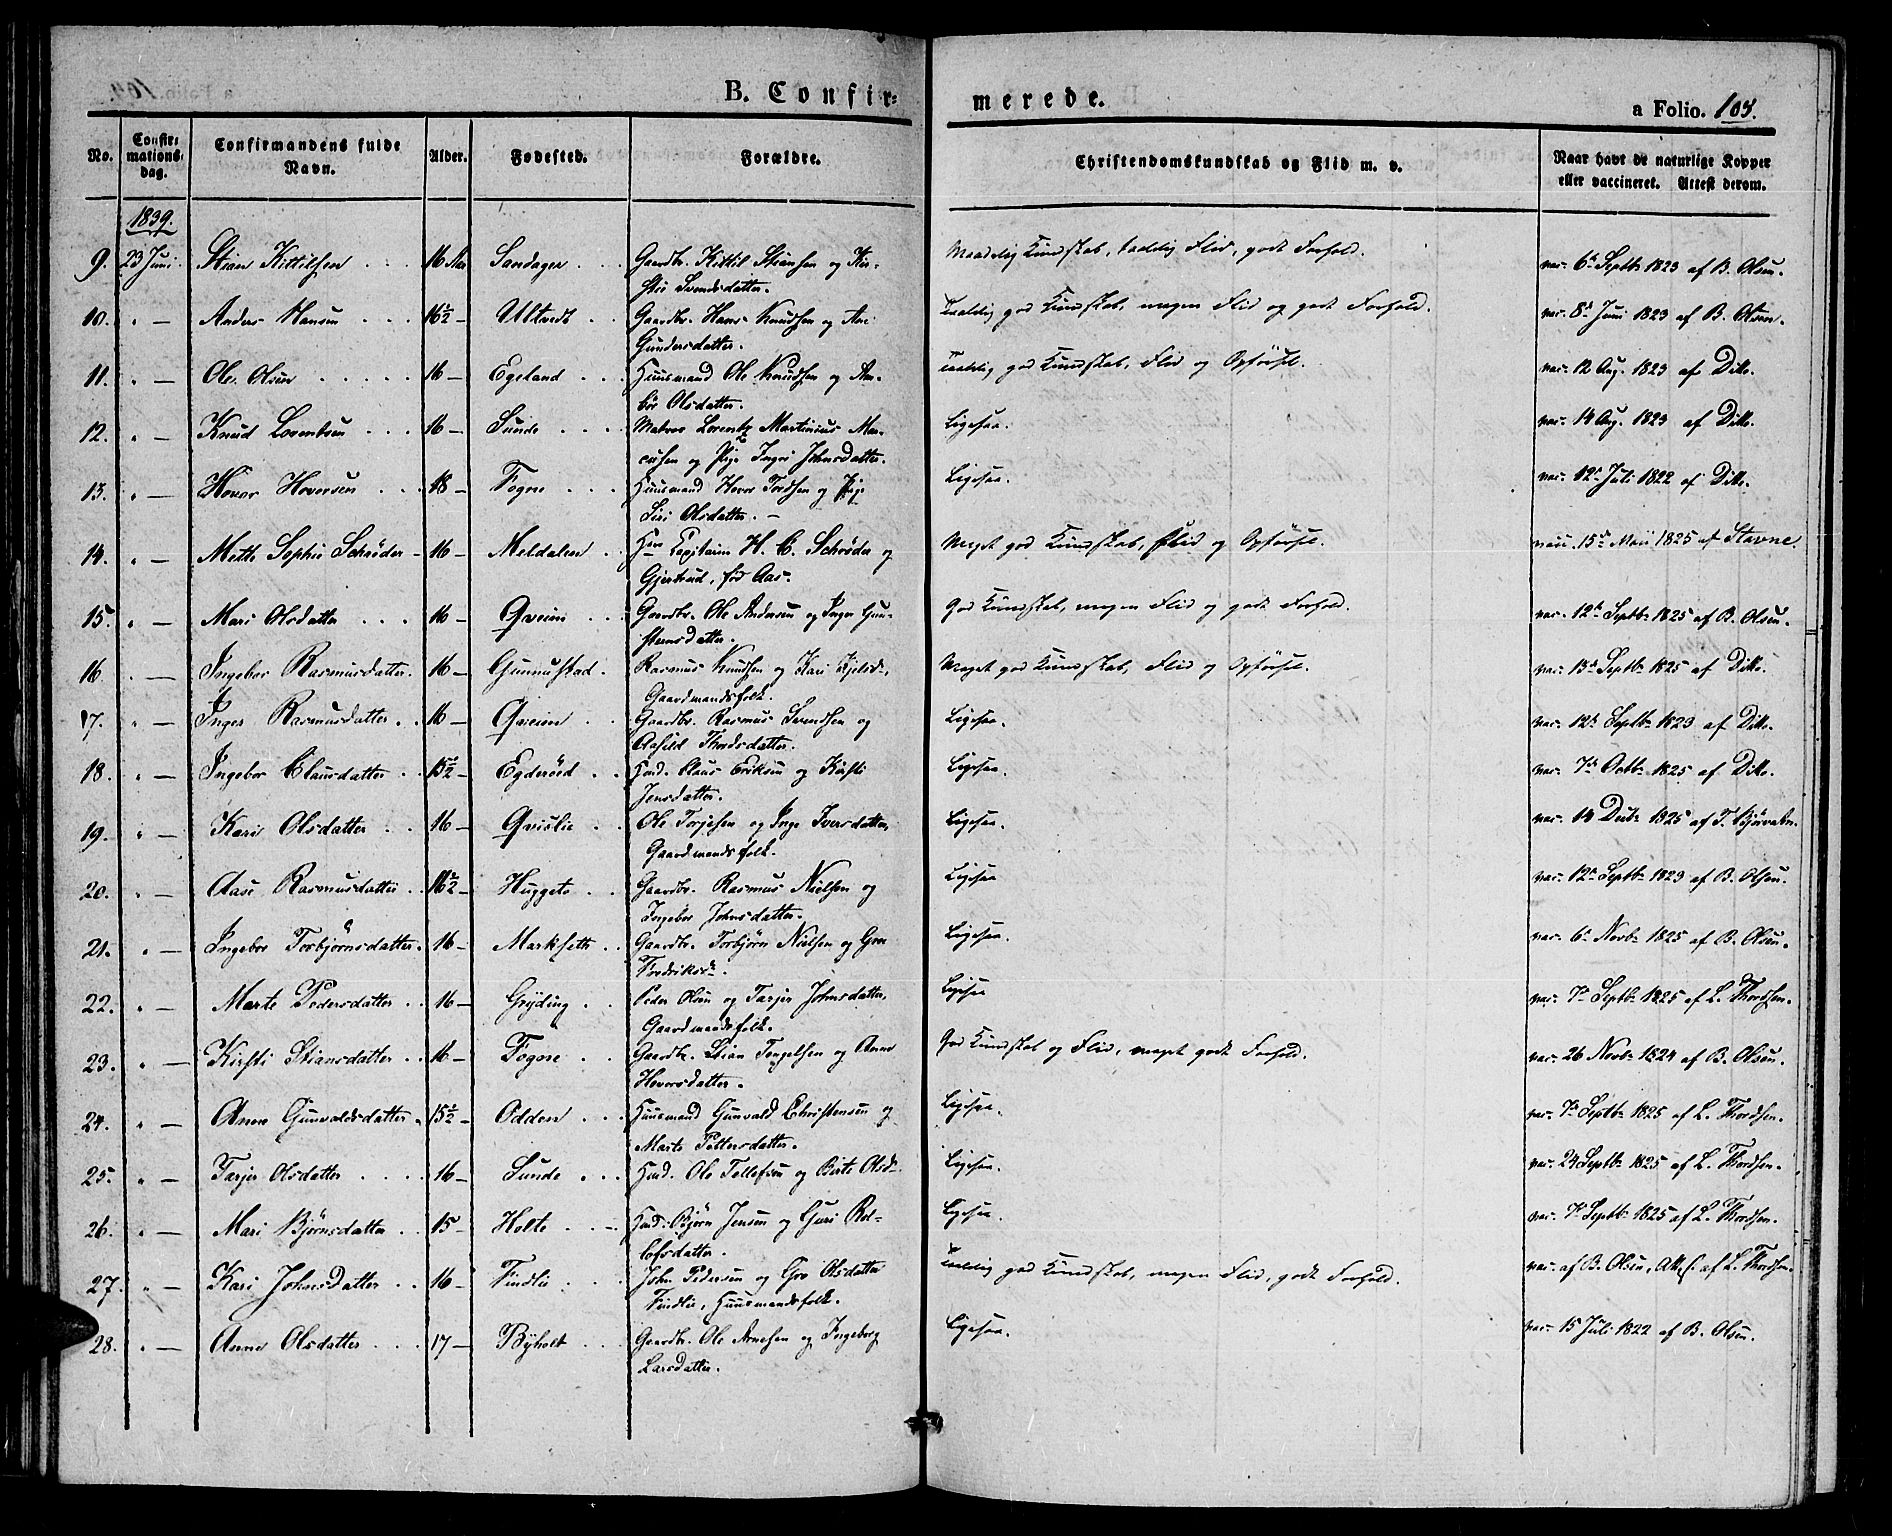 B. Confir-
merede.
a Folio. 104.
No.
Confir-
mations-
dag.
Confirmandens fulde
Navn.
Alder.
Fødested.
Forældre.
Christendomskundskab og Flid m. v.
Naar havt de naturlige Kopper
eller vaccineret. Attest derom.
1839.
9. 23 Juni Stian Kittilsen 16 Aar Sandager Gaardbr. Kittil Stiansen og Kir-
stie Svendsdatter. Maadelig Kundskab, taalelig Flid, godt Forhold. vac. 6te Septbr 1823 af B. Olsen.
10. " — Anders Hansen 16½ — Ultvedt Gaardbr. Hans Knudsen og
Gundersdatter. god Kundskab, megen Flid og godt Forhold. vac. 8de Juni 1823 af B. Olsen.
11. " — Ole Olsen 16 — Egeland Huusmand Ole Knudsen og An-
Olsdatter. god Kundskab, Flid og Opførsel. vac. 12 Aug. 1823 af Ditto.
12. " — Knud Lorentsen 16 — Sunde Matros Lorentz Martinius Mar-
cusen og Pige Ingri Johnsdatter. Ligesaa. vac. 14 Aug. 1823 af Ditto.
13. " — Hover Hoversen 18 — Fogne Huusmand Hover Tordsen og Pige
Siri Olsdatter. — Ligesaa. vac. 12te Juli 1822 af Ditto.
14. " — Mette Sophie Schrøder — 16 — Meldalen Hrr Capitain H. C. Schrøder og
Gjertrud, fød Aas. Meget god Kundskab, Flid og Opførsel. vacc. 15de Maii 1825 af Stavne.
15. " — Mari Olsdatter 16 — Qveim Gaardbr. Ole Andersen og Inger Gun-
datter. God Kundskab, megen Flid og godt Forhold. vac. 12te Septbr 1825 af B. Olsen.
16 " — Ingebor Rasmusdatter. 16 — Gunnustad Rasmus Knudsen og Kari
Gaardmandsfolk. Meget god Kundskab, Flid og Opførsel. vac. 13de Septbr 1825 af Ditto.
17. " — Inger Rasmusdatter 16 — Qveim Gaardbr. Rasmus Svendsen og
Aasild Thordsdatter. Ligesaa. vac. 12te Septbr 1823 af Ditto.
18. " — Ingebor Clausdatter 15½ — Egderød Hmd. Claus Eriksen og Kirsti
Jensdatter. Ligesaa. vac. 7de Octbr 1825 af Ditto.
19. " — Kari Olsdatter 16 — Qvislie Ole Torjesen og Inge Iversdatter,
Gaardmandsfolk. Ligesaa. vac. 14 Decbr 1825 af T.
20. " — Aase Rasmusdatter 16½ — Huggete Gaardbr. Rasmus Nielsen og
Ingebor Johnsdatter. Ligesaa vac. 12te Septbr 1823 af B. Olsen.
21. " — Ingebor Torbjørnsdatter. 16 — Marksett Gaardbr. Torbjørn Nielsen og Gro
Fredriksdr. Ligesaa. vac. 6te Novbr 1825 af B. Olsen.
22. " — Marte Pedersdatter 16 — Gryding Peder Olsen og Tarjer Johnsdatter,
Gaardmandsfolk. Ligesaa vac. 7de Septbr 1825 af L. Thordsen.
23. " — Kirsti Stiansdatter 16 — Fogne Gaardbr. Stian Tengelsen og Anne
Hoversdatter. God Kundskab og Flid, meget godt Forhold. vac. 26 Novbr 1824 af B. Olsen.
24. " — Anne Gunvaldsdatter 15½ — Odden Huusmand Gunvald Christensen og
Marte Pettersdatter. Ligesaa. vac. 7de Septbr 1825 af L. Thordsen.
25. " — Tarjer Olsdatter 16 — Sunde Hmd. Ole Tellefsen og Berte Olsdr. Ligesaa. vac. 24 Septbr 1825 af L. Thordsen.
26. " — Mari Bjørnsdatter 15 — Holte Hmd. Bjørn Jensen og Guri Rol-
lofsdatter. Ligesaa. vac. 7de Septbr 1825 af L. Thordsen.
27. " — Kari Johnsdatter 16 — Findlie John Pedersen og Gro Olsdatter
Findlie, Huusmandsfolk. Taalelig god Kundskab, megen Flid, godt Forhold. vac. af B. Olsen, Att. af L. Thordsen.
28. " — Anne Olsdatter 17 — Byholt Gaardbr. Ole Arnesen og Ingeborg
Larsdatter. Ligesaa. vac. 15 Juli 1822 af B. Olsen.